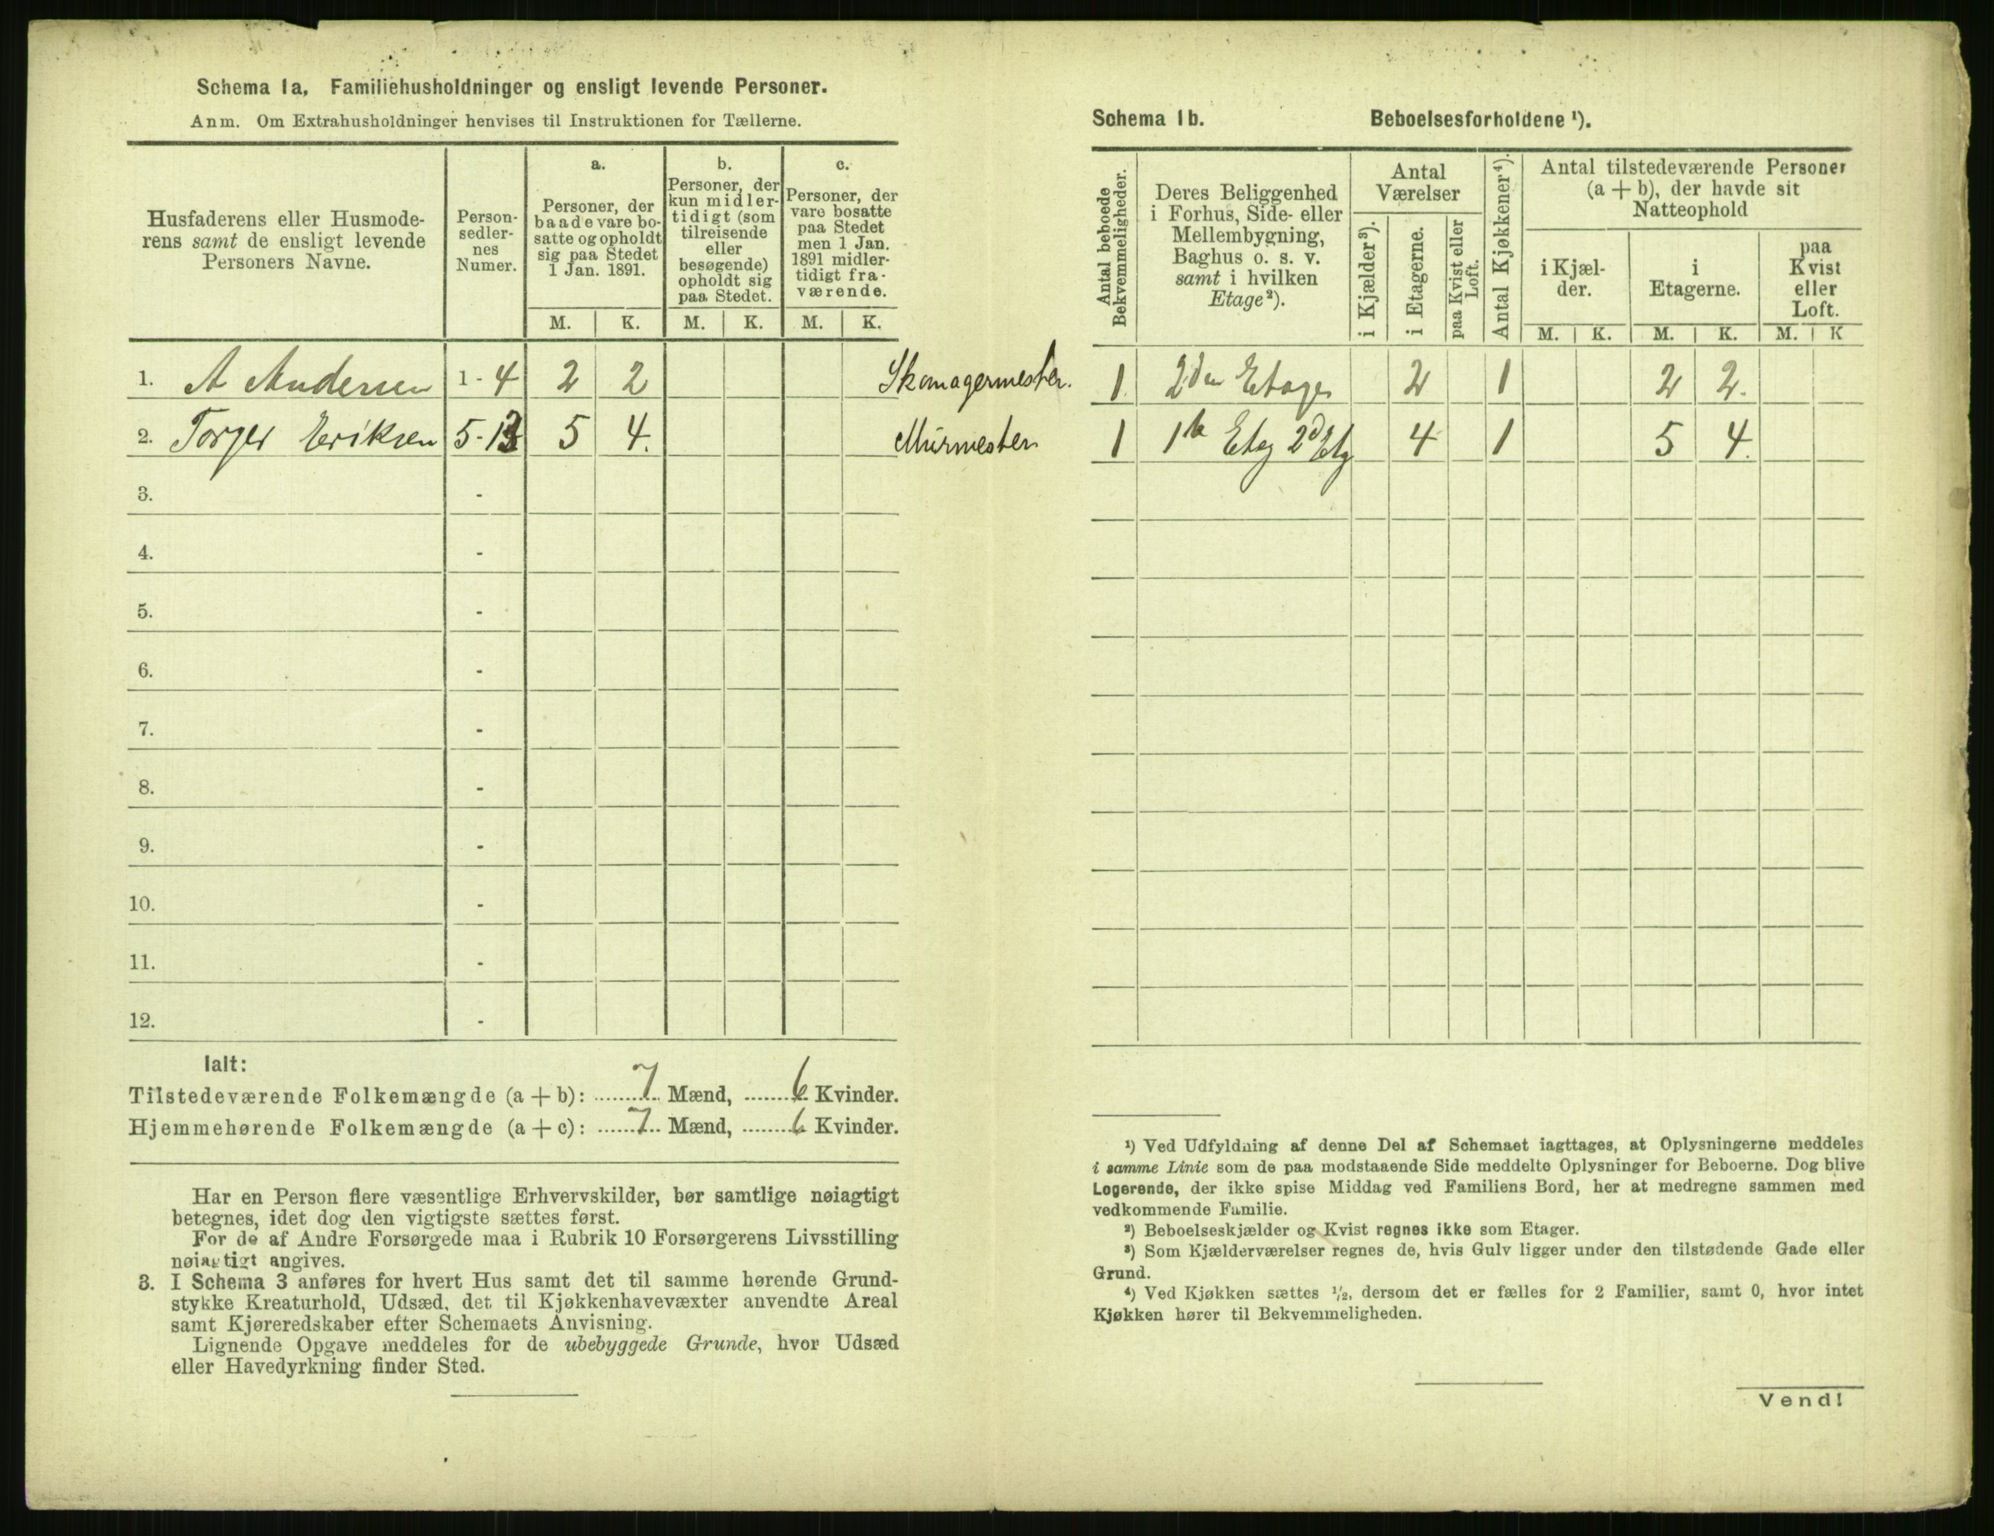 Schema 1a, Familiehusholdninger og ensligt levende Personer.
Anm. Om Extrahusholdninger henvises til Instruktionen for Tællerne.
Husfaderens eller Husmode-
rens samt de ensligt levende
Personers Navne.
Person-
sedler-
nes
Numer.
a.
Personer, der
baade vare bo-
satte og opholdt
sig paa Stedet
1 Jan. 1891.
b.
Personer, der
kun midler-
tidigt (som
tilreisende
eller
besøgende)
opholdt sig
paa Stedet.
c.
Personer, der
vare bosatte
paa Stedet
men 1 Jan.
1891 midler-
tidigt fra-
værende.
M. K. M. K. M. K.
1. A Andersen 1 - 4 2 2 Skomagermester.
2. Torger Eriksen 5-13 5 4. Murmester
3. -
4. -
5. -
6. -
7. -
8. -
9. -
10. -
11. -
12. -
Ialt:
Tilstedeværende Folkemængde (a + b): 7 Mænd, 6 Kvinder.
Hjemmehørende Folkemængde (a + c): 7 Mænd, 6 Kvinder.
Har en Person flere væsentlige Erhvervskilder, bør samtlige nøiagtigt
betegnes, idet dog den vigtigste sættes først.
For de af Andre Forsørgede maa i Rubrik 10 Forsørgerens Livsstilling
nøiagtigt angives.
3. I Schema 3 anføres for hvert Hus samt det til samme hørende Grund-
stykke Kreaturhold, Udsæd, det til Kjøkkenhavevæxter anvendte Areal
samt Kjøreredskaber efter Schemaets Anvisning.
Lignende Opgave meddeles for de ubebyggede Grunde, hvor Udsæd
eller Havedyrkning finder Sted.
Schema 1b. Beboelsesforholdene ¹).
Antal beboede
Bekvemmeligheder.
Deres Beliggenhed
i Forhus, Side- eller
Mellembygning,
Baghus o. s. v.
samt i hvilken
Etage ²).
Antal
Værelser
i Kjælder ³).
i Etagerne.
paa Kvist eller
Loft.
Antal Kjøkkener ⁴).
Antal tilstedeværende Personer
(a + b), der havde sit
Natteophold
i Kjæl-
der.
i
Etagerne.
paa
Kvist
eller
Loft.
M. K. M. K. M. K
1 2den Etage 2 1 2 2.
1 1te Etag 2d Etg 4 1 5 4.
¹) Ved Udfyldning af denne Del af Schemaet iagttages, at Oplysningerne meddeles
i samme Linie som de paa modstaaende Side meddelte Oplysninger for Beboerne. Dog blive
Logerende, der ikke spise Middag ved Familiens Bord, her at medregne sammen med
vedkommende Familie.
²) Beboelseskjælder og Kvist regnes ikke som Etager.
³) Som Kjælderværelser regnes de, hvis Gulv ligger under den tilstødende Gade eller
Grund.
⁴) Ved Kjøkken sættes ½, dersom det er fælles for 2 Familier, samt 0, hvor intet
Kjøkken hører til Bekvemmeligheden.
Vend!